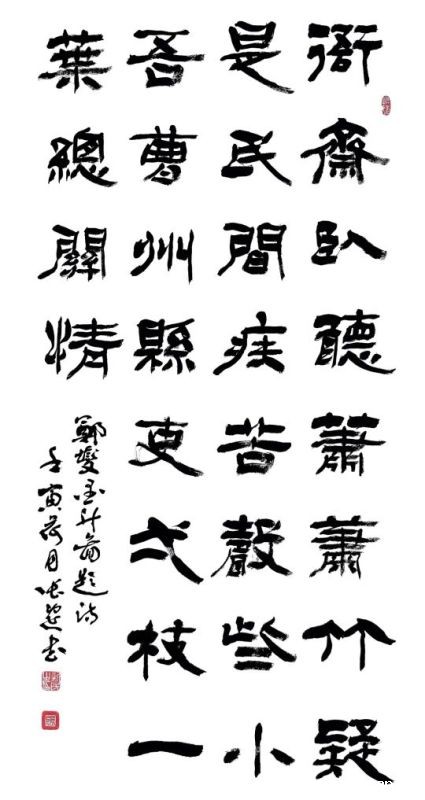 衙齋臥聽蕭蕭竹疑
是民間疾苦聲些小
吾曹州縣吏弌枝一
葉總關情
鄭燮墨竹圖題詩
壬寅荷月